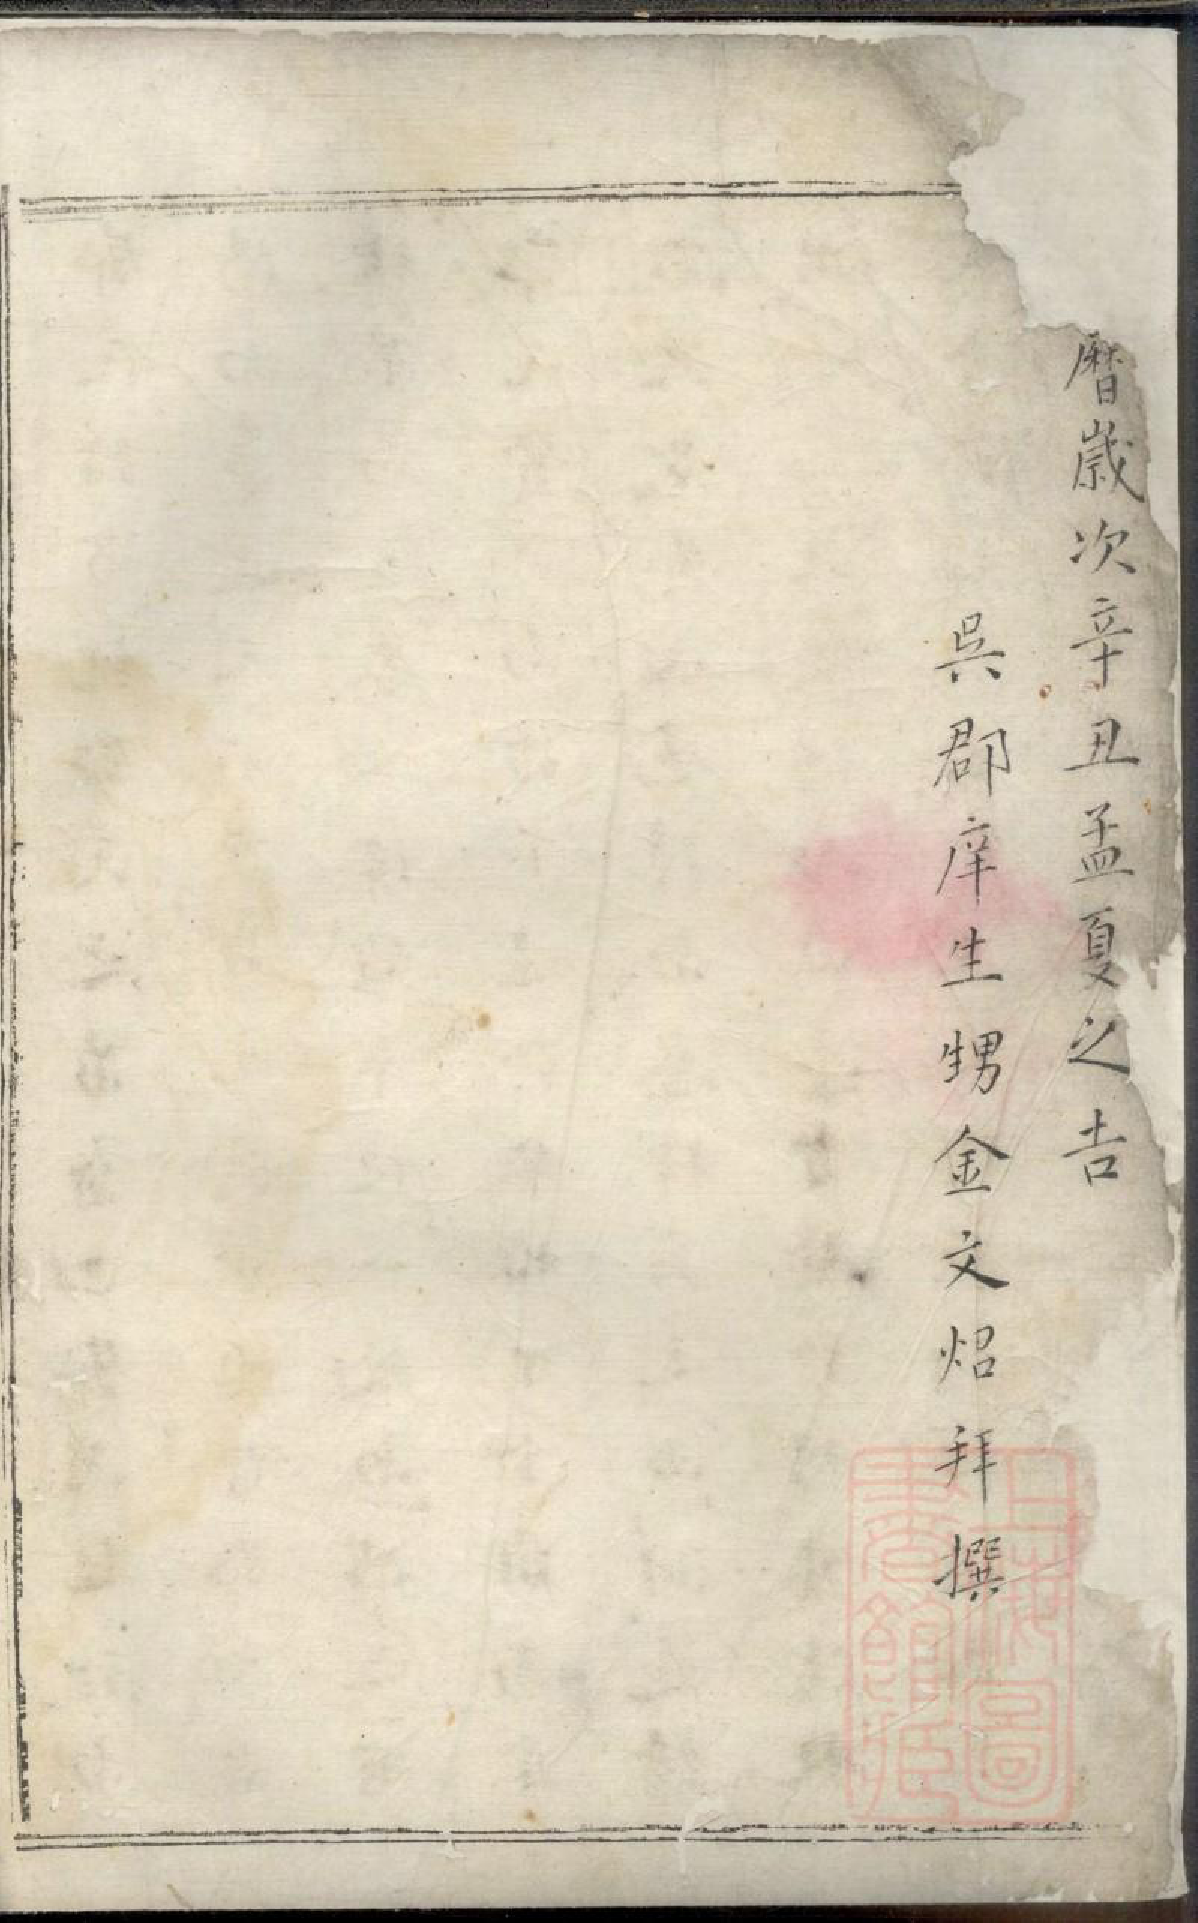 暦歲次辛丑孟夏之吉
吳郡庠生甥金文炤拜撰
上海圖書館藏